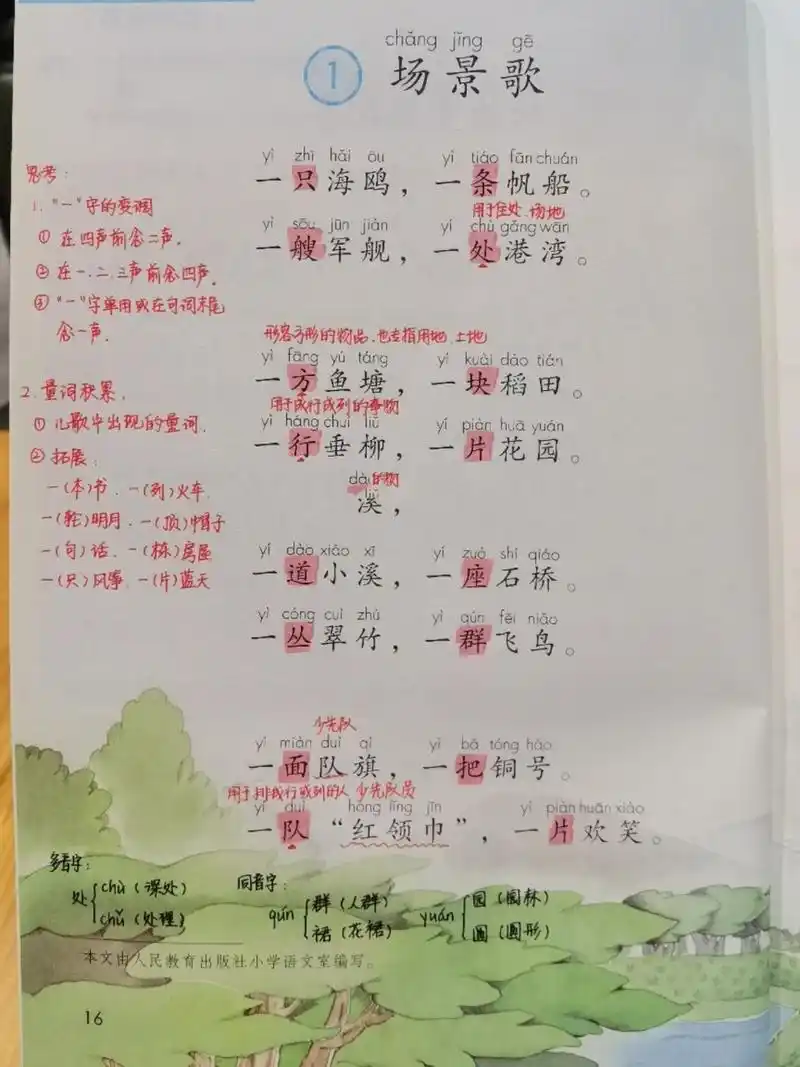 chǎng jǐng gē
① 场景歌
yì zhī hǎi ōu yì tiáo fān chuán
一只海鸥，一条帆船。
用于住处、场地
yì sōu jūn jiàn yí chù gǎng wān
一艘军舰，一处港湾。
形容方形的物品，也专指用地、土地
yì fāng yú táng yí kuài dào tián
一方鱼塘，一块稻田。
用于成行成列的事物
yì háng chuí liǔ yí piàn huā yuán
一行垂柳，一片花园。
的物
溪，
yí dào xiǎo xī yí zuò shí qiáo
一道小溪，一座石桥。
yì cóng cuì zhú yì qún fēi niǎo
一丛翠竹，一群飞鸟。
少先队
yí miàn duì qí yì bǎ tóng hào
一面队旗，一把铜号。
用于排成行或列的人 少先队员
yí duì hóng lǐng jīn yí piàn huān xiào
一队“红领巾”，一片欢笑。
思考：
1. "一"字的变调
① 在四声前念二声。
② 在一、二、三声前念四声。
③ "一"字单用或在句词末尾
念一声。
2. 量词积累。
① 儿歌中出现的量词。
② 拓展：
一(本)书、一(列)火车
一(轮)明月、一(顶)帽子
一(句)话、一(栋)房屋
一(只)风筝、一(片)蓝天
多音字：
处 chù (课处)
chǔ (处理)
同音字：
qún 群 (人群)
裙 (花裙)
yuán 园 (园林)
圆 (圆形)
本文由人民教育出版社小学语文室编写。
16